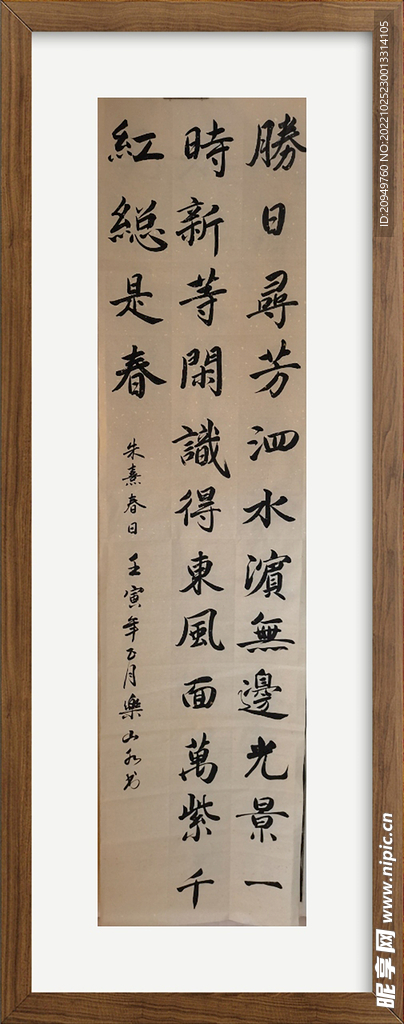 勝日尋芳泗水濱無邊光景一
時新等閑識得東風面萬紫千
紅総是春
朱熹春日 壬寅年五月樂山水书
ID:20949760 NO:20221025230013314105
昵享网 www.nipic.cn